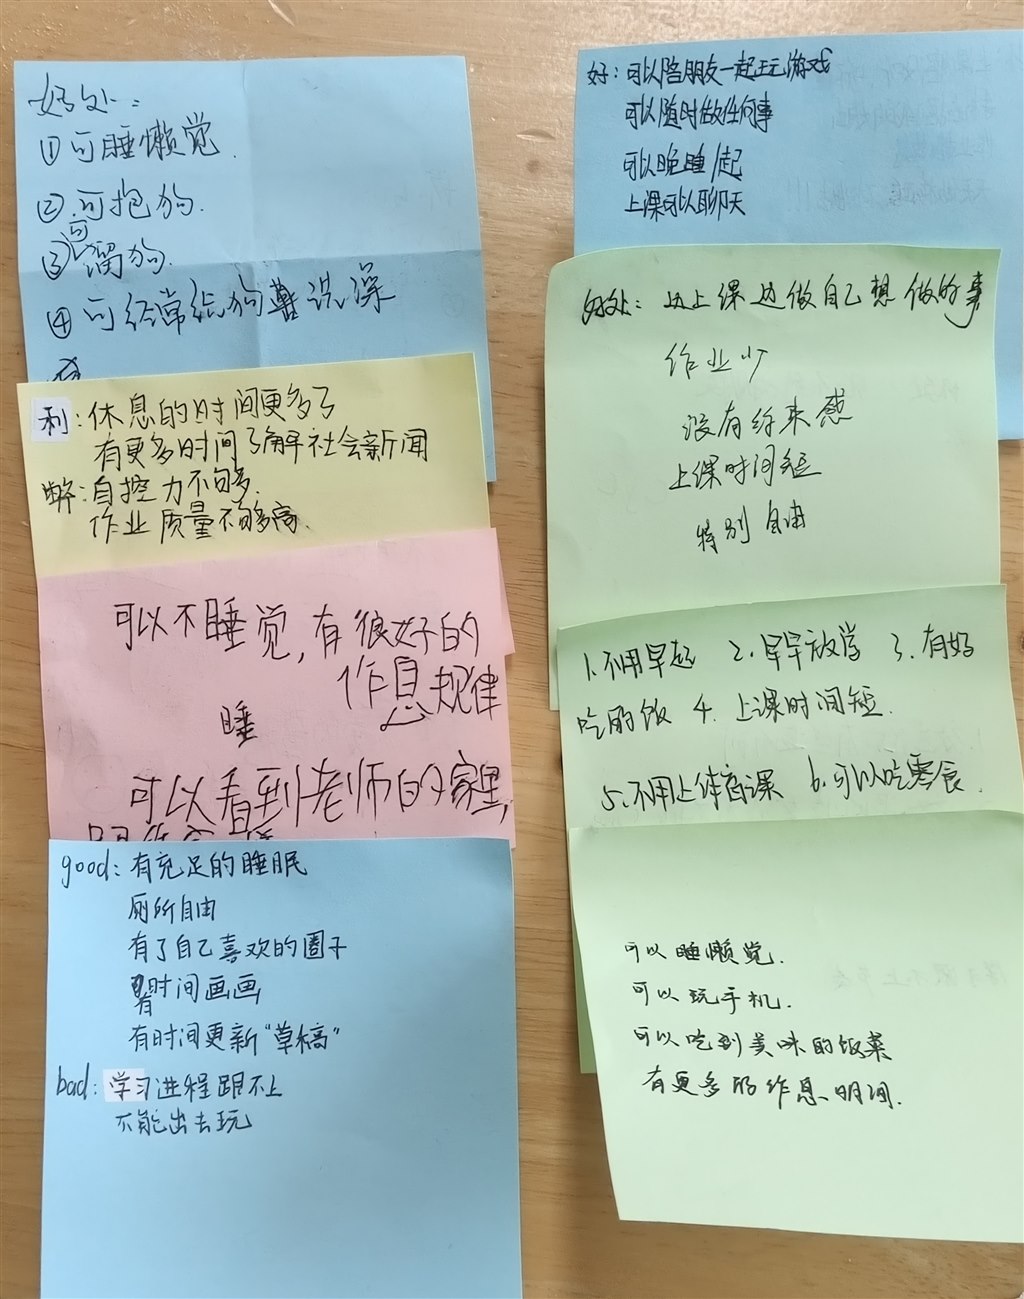 好处：
①可睡懒觉
②可抱狗.
③可溜狗.
④可经常给狗洗澡
利：休息的时间更多了
有更多时间了解社会新闻
弊：自控力不够.
作业质量不够高.
可以不睡觉，有很好的
作息规律
睡
可以看到老师的家里，
good：有充足的睡眠
厕所自由
有了自己喜欢的圈子
有时间画画
有时间更新“草稿”
bad：学习进程跟不上
不能出去玩
好：可以陪朋友一起玩游戏
可以随时做任何事
可以晚睡/起
上课可以聊天
好处：边上课边做自己想做的事
作业少
没有约束感
上课时间短
特别自由
1.不用早起 2.早早放学 3.有好
吃的饭 4.上课时间短.
5.不用上体育课 6.可以吃零食.
可以睡懒觉.
可以玩手机.
可以吃到美味的饭菜
有更多的作息时间.